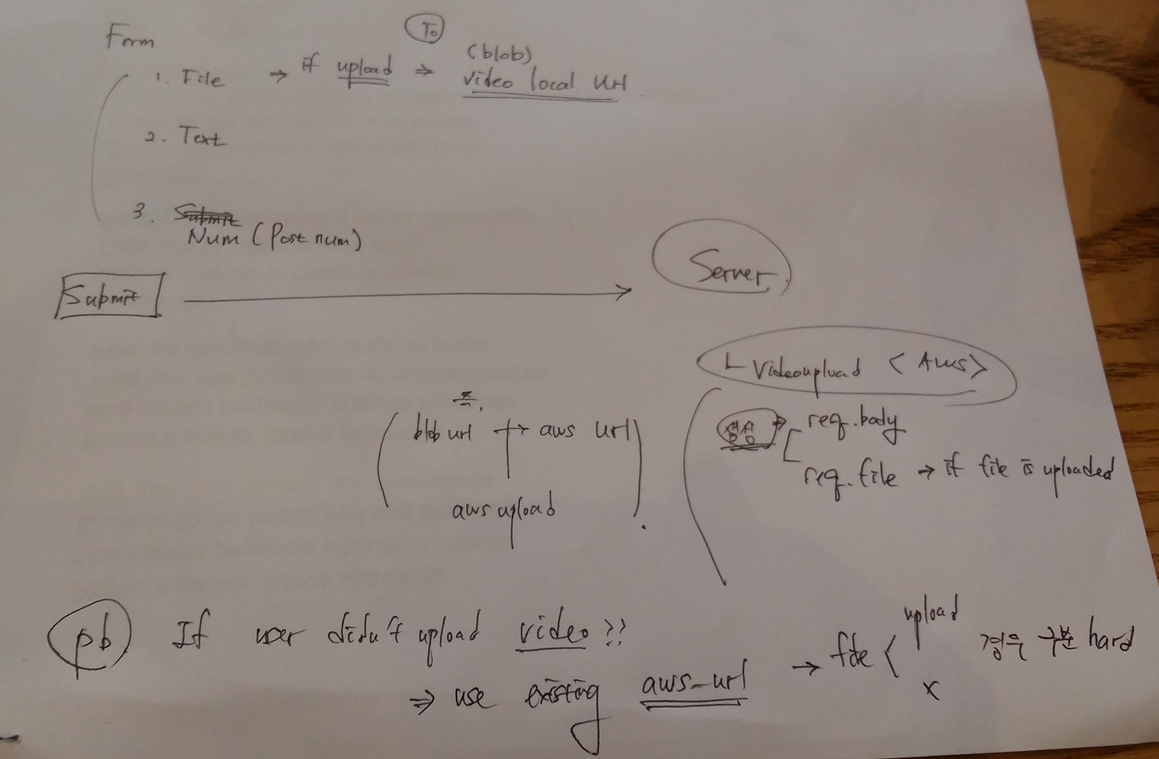 Form
To
1. File → if upload ⇒ (blob)
video local url
2. Text
3. Submit
Num (Post num)
Submit
Server
ㄴ Videoupload <Aws>
req.body
req.file → if file is uploaded
blob url → aws url
aws upload
pb If user didn't upload video??
⇒ use existing aws_url
→ file < upload
x
경우 구분 hard